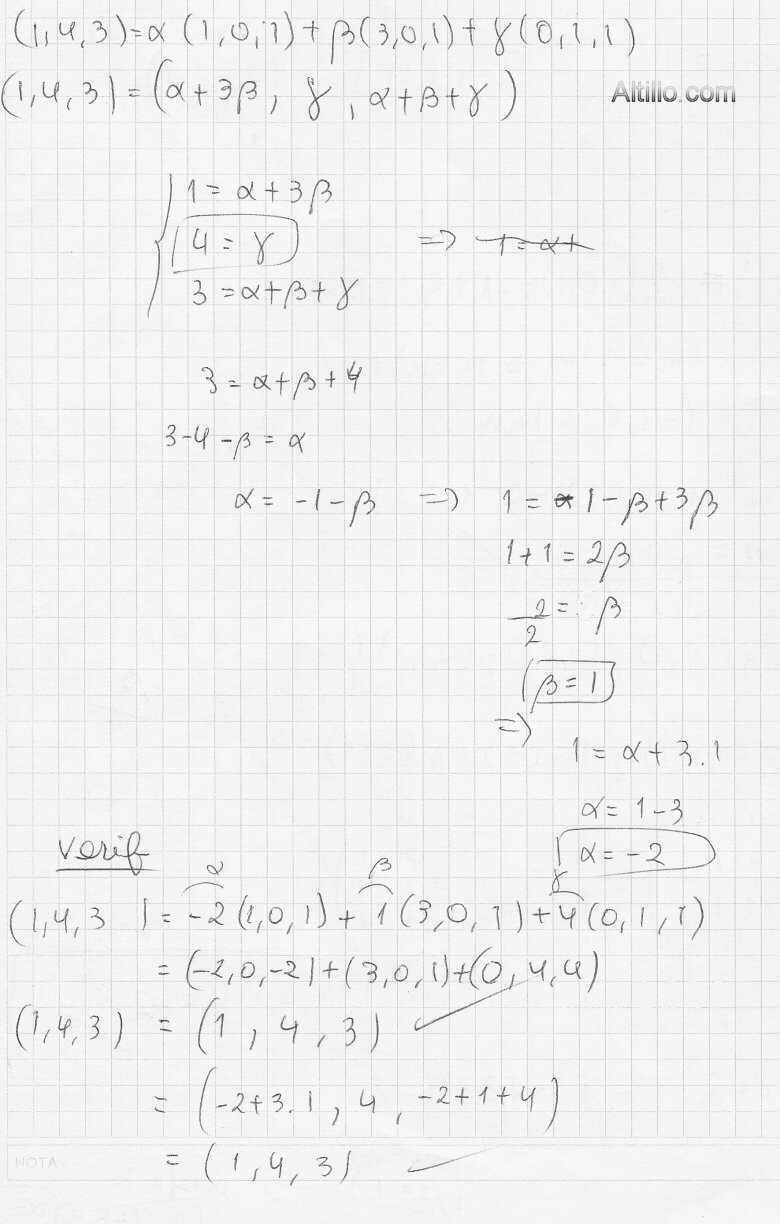 (1,4,3) = α (1,0,1) + β(3,0,1) + γ(0,1,1)
(1,4,3) = (α+3β, γ, α+β+γ)
Altillo.com
1 = α + 3β
4 = γ ⇒ 1 = α+
3 = α+β+γ
3 = α+β+4
3-4-β = α
α = -1-β ⇒ 1 = 1-β+3β
1+1 = 2β
2/2 = β
β = 1
⇒ 1 = α + 3.1
α = 1-3
α = -2
Verif
α β γ
(1,4,3) = -2(1,0,1) + 1(3,0,1) + 4(0,1,1)
= (-2,0,-2)+(3,0,1)+(0,4,4)
(1,4,3) = (1, 4, 3) ✓
= (-2+3.1, 4, -2+1+4)
= (1,4,3) ✓
NOTA